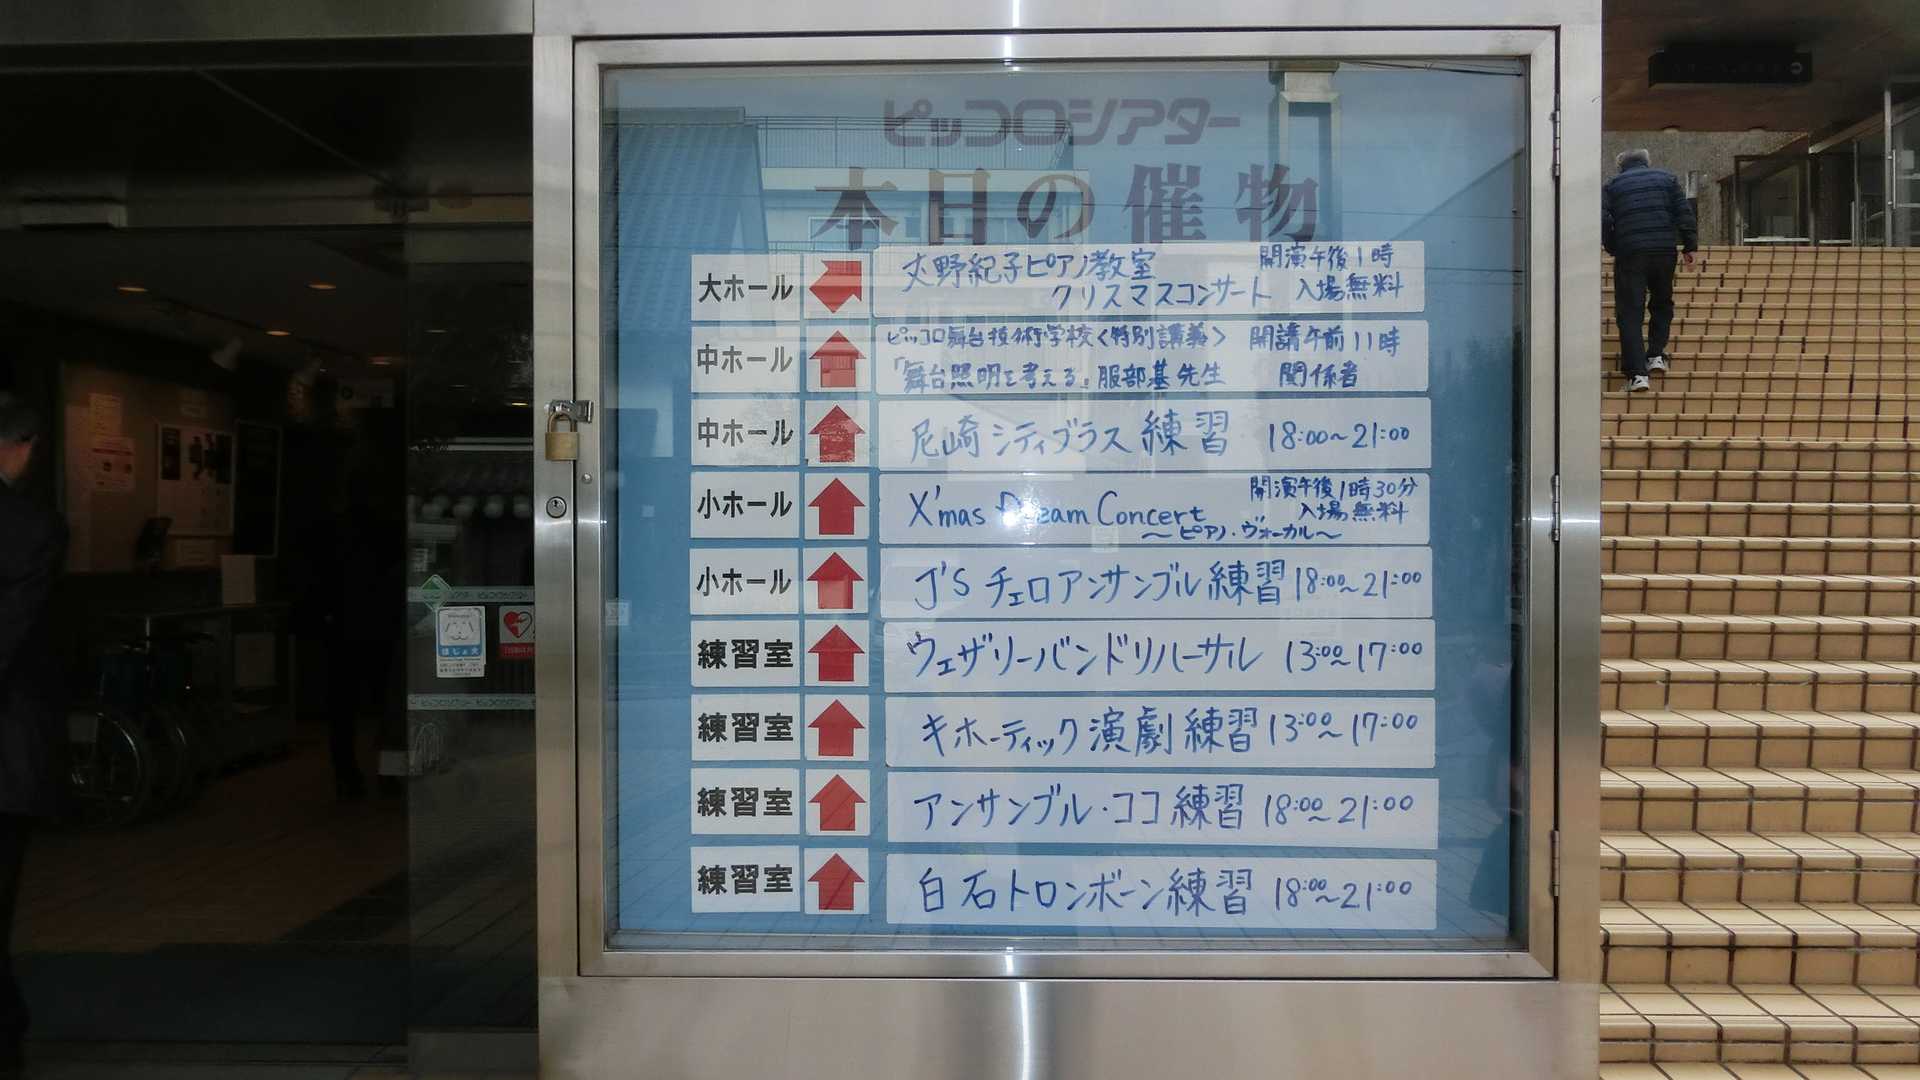 ピッコロシアター
本日の催物
大ホール
大野紀子ピアノ教室
クリスマスコンサート
開演午後1時
入場無料
中ホール
ピッコロ舞台技術学校<特別講義>
「舞台照明を考える」服部基先生
開講午前11時
関係者
中ホール
尼崎シティブラス練習 18:00~21:00
小ホール
X'mas Dream Concert
~ピアノ・ヴォーカル~
開演午後1時30分
入場無料
小ホール
J'S チェロアンサンブル練習 18:00~21:00
練習室
ウェザリーバンドリハーサル 13:00~17:00
練習室
キホーティック演劇練習 13:00~17:00
練習室
アンサンブル・ココ練習 18:00~21:00
練習室
白石トロンボーン練習 18:00~21:00
ピッコロシアター
ほじょ犬